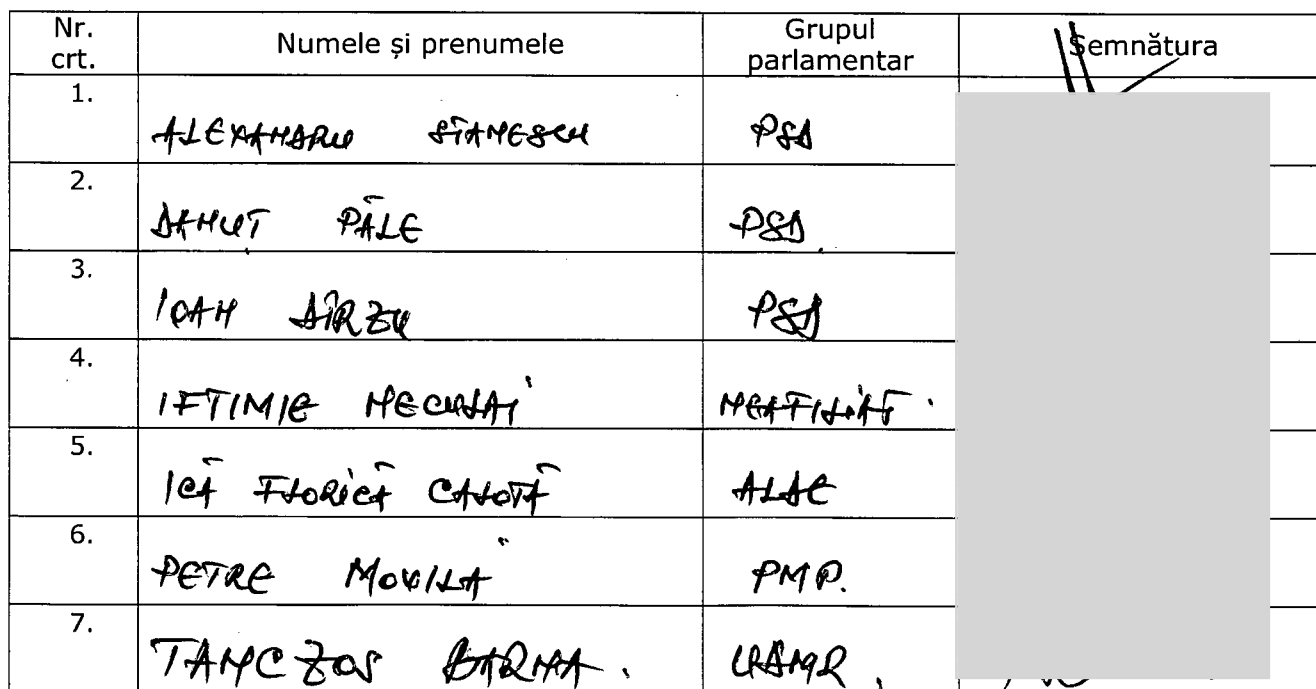 Nr. crt. Numele și prenumele Grupul parlamentar Semnătura
1. ALEXANDRU STANESCU PSD
2. DANUȚ PĂLE PSD
3. IOAN DÎRZU PSD
4. IFTIMIE NECULAI NEAFILIAT
5. ICĂ FLORICĂ CALOTĂ ALDE
6. PETRE MOVILĂ PMP.
7. TANCZOS BARNA. UDMR